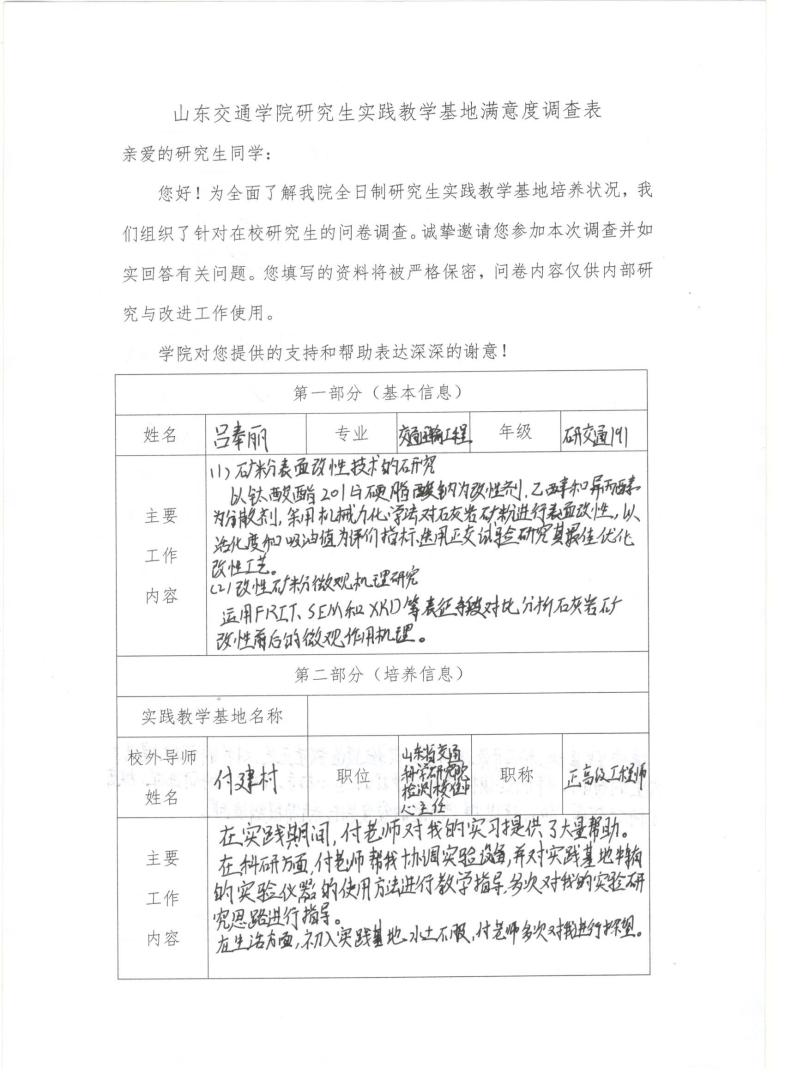 山东交通学院研究生实践教学基地满意度调查表
亲爱的研究生同学：
您好！为全面了解我院全日制研究生实践教学基地培养状况，我
们组织了针对在校研究生的问卷调查。诚挚邀请您参加本次调查并如
实回答有关问题。您填写的资料将被严格保密，问卷内容仅供内部研
究与改进工作使用。
学院对您提供的支持和帮助表达深深的谢意！
第一部分（基本信息）
姓名 吕奉丽 专业 交通运输工程 年级 研交通191
主要
工作
内容
(1) 矿粉表面改性技术的研究
以钛酸酯201与硬脂酸钠为改性剂，乙醇和异丙醇
为分散剂，采用机械力化学法对石灰岩矿粉进行表面改性，以
活化度和吸油值为评价指标，选用正交试验研究其最佳优化
改性工艺。
(2) 改性矿粉微观机理研究
运用FRIT、SEM和XRD等表征手段对比分析石灰岩矿
改性前后的微观作用机理。
第二部分（培养信息）
实践教学基地名称
校外导师
姓名
付建村
职位
山东省交通
科学研究院
检测校准中
心主任
职称
正高级工程师
主要
工作
内容
在实践期间，付老师对我的实习提供了大量帮助。
在科研方面，付老师帮我协调实验设备，并对实践基地
的实验仪器的使用方法进行教学指导，多次对我的实验研
究思路进行指导。
在生活方面，初入实践基地，水土不服，付老师多次对我进行探望。